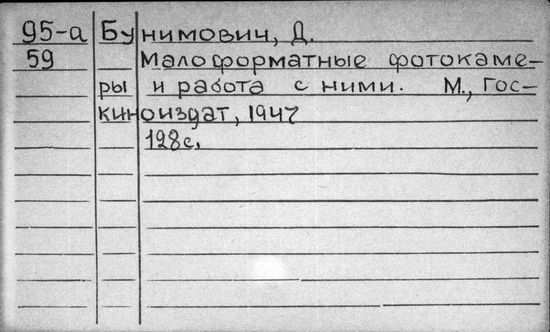 95-а Бунимович, Д.
59 Малоформатные фотокаме-
ры и работа с ними. М., Гос-
киноиздат, 1947
128с.